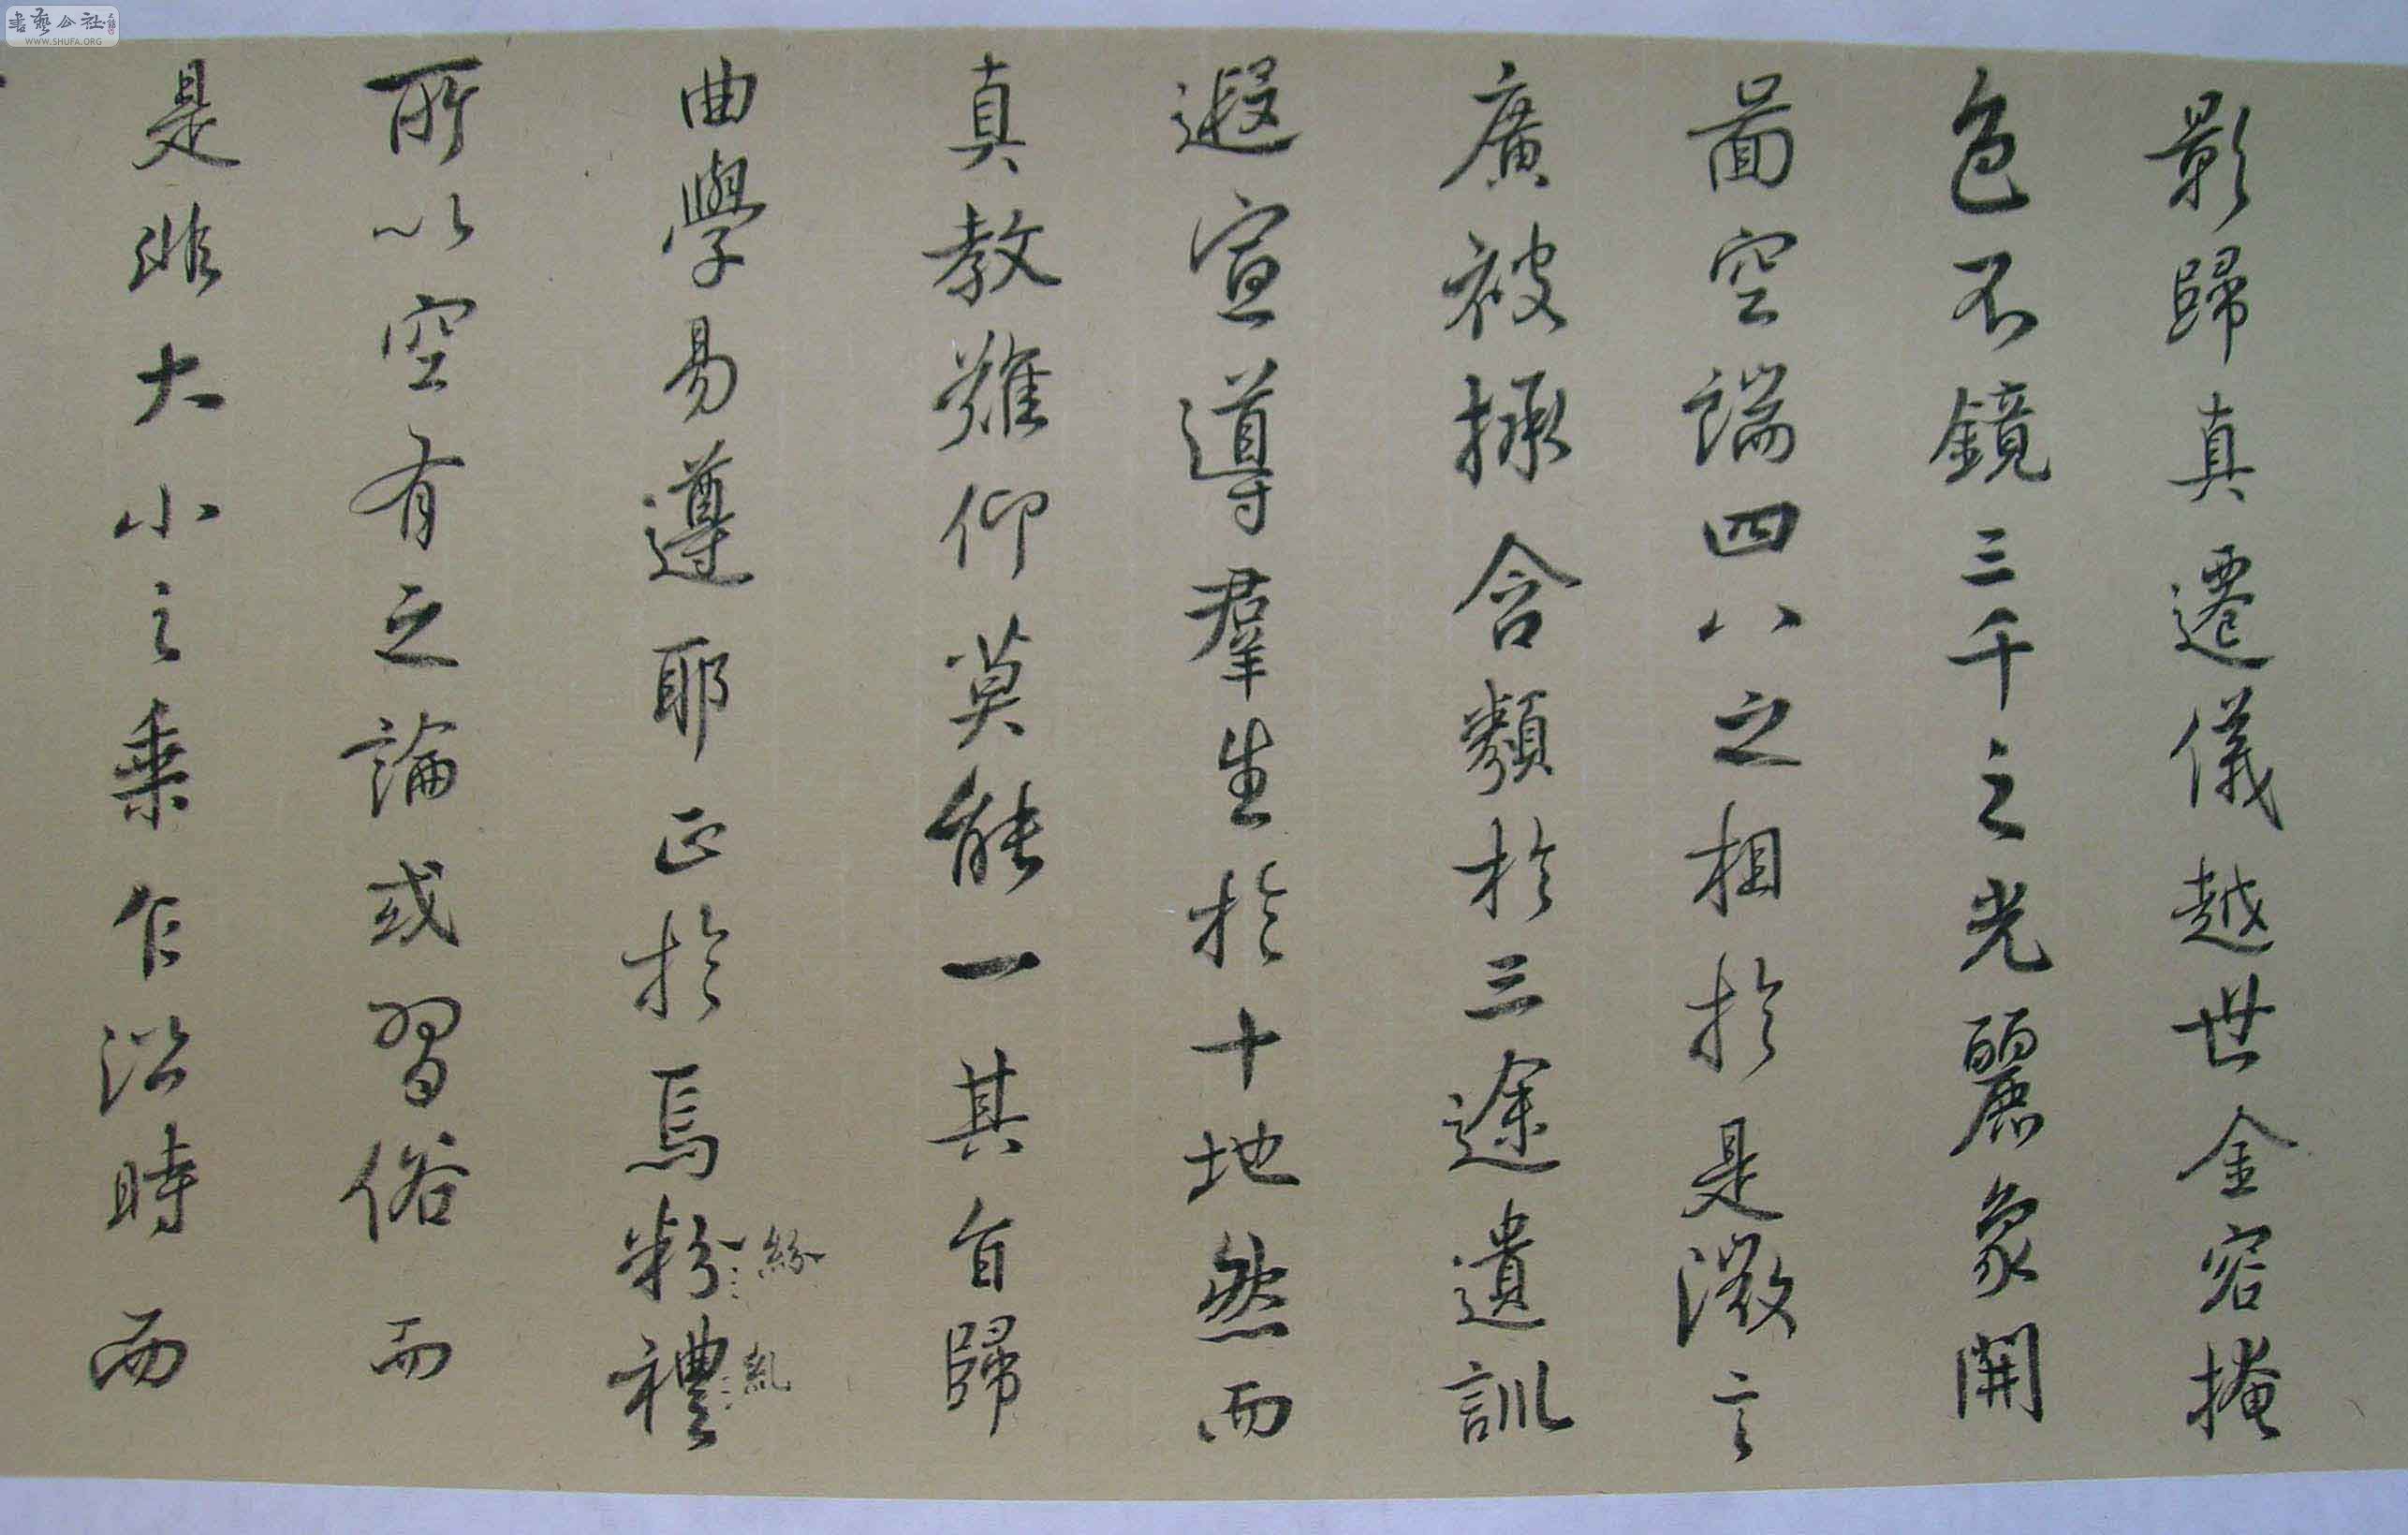 書藝公社
WWW.SHUFA.ORG
影歸真遷儀越世金容掩
色不鏡三千之光麗象開
啚空端四八之相於是微言
廣被拯含類於三途遺訓
遐宣導群生於十地然而
真教難仰莫能一其旨歸
曲學易遵耶正於焉粉禮
紛糺
所以空有之論或習俗而
是非大小之乘乍沿時而